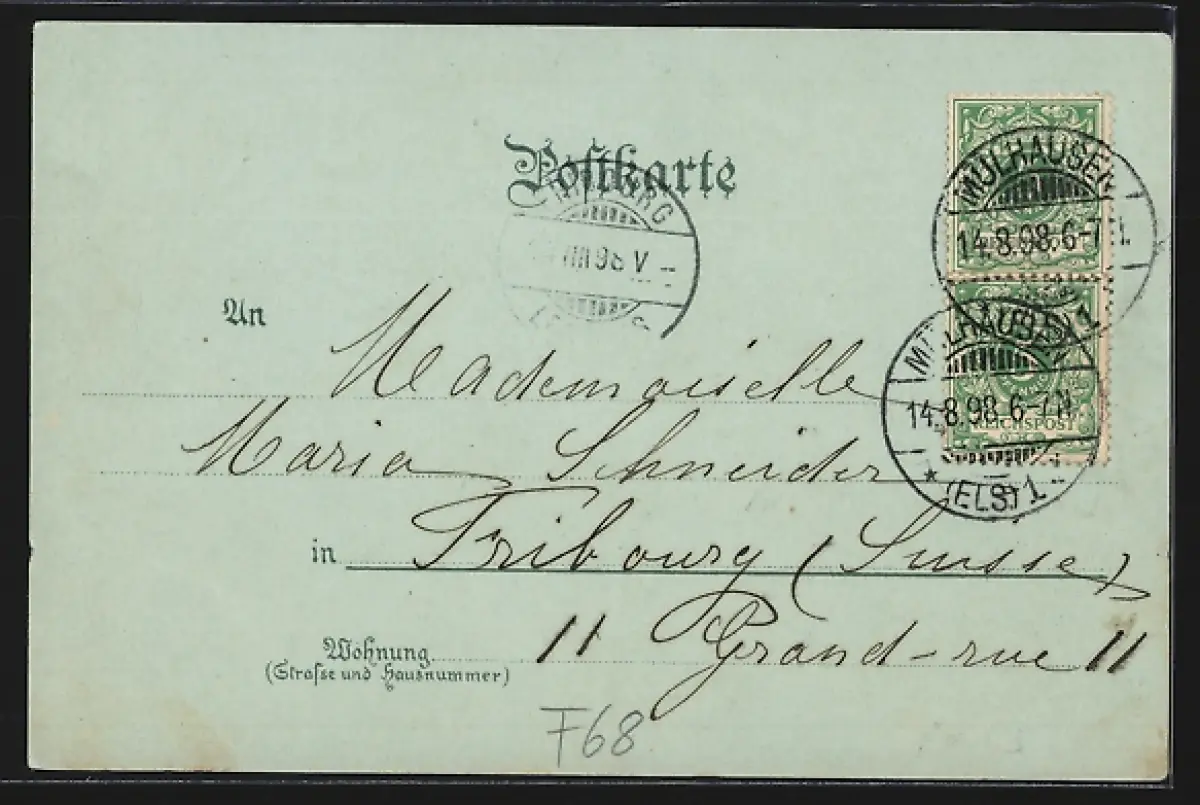 Postkarte
MÜLHAUSEN
14.8.98.6-7N.
(ELS) 1
REICHSPOST
MÜLHAUSEN
14.8.98.6-7N.
* (ELS) 1
REICHSPOST
VIII 98 V
An
Mademoiselle
Maria Schneider
in Fribourg (Suisse)
Wohnung 11 Grand-rue 11
(Strasse und Hausnummer)
F68